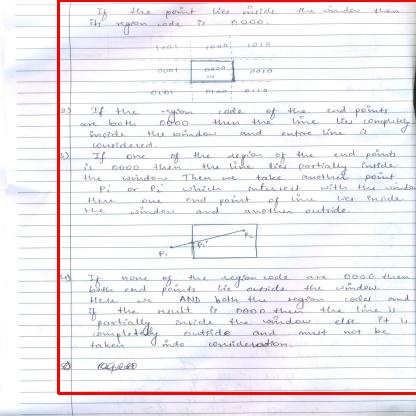 If the point lies inside the window then
its region code is 0000.
1001 1000 1010
0001 0000 0010
W
0101 0100 0110
2) If the region code of the end points
are both 0000 then the line lies completely
inside the window and entire line is
considered.
3) If one of the region of the end points
is 0000 then the line lies partially inside
the window. Then we take another point
Pi' or Pi' which intersect with the window
Here one end point of line lies inside
the window and another outside.
P1 P1' P2
4) If none of the region code are 0000 then
both end points lie outside the window.
Here we AND both the region codes and
if the result is 0000 then the line is
partially inside the window else it is
completely outside and must not be
taken into consideration.
5)